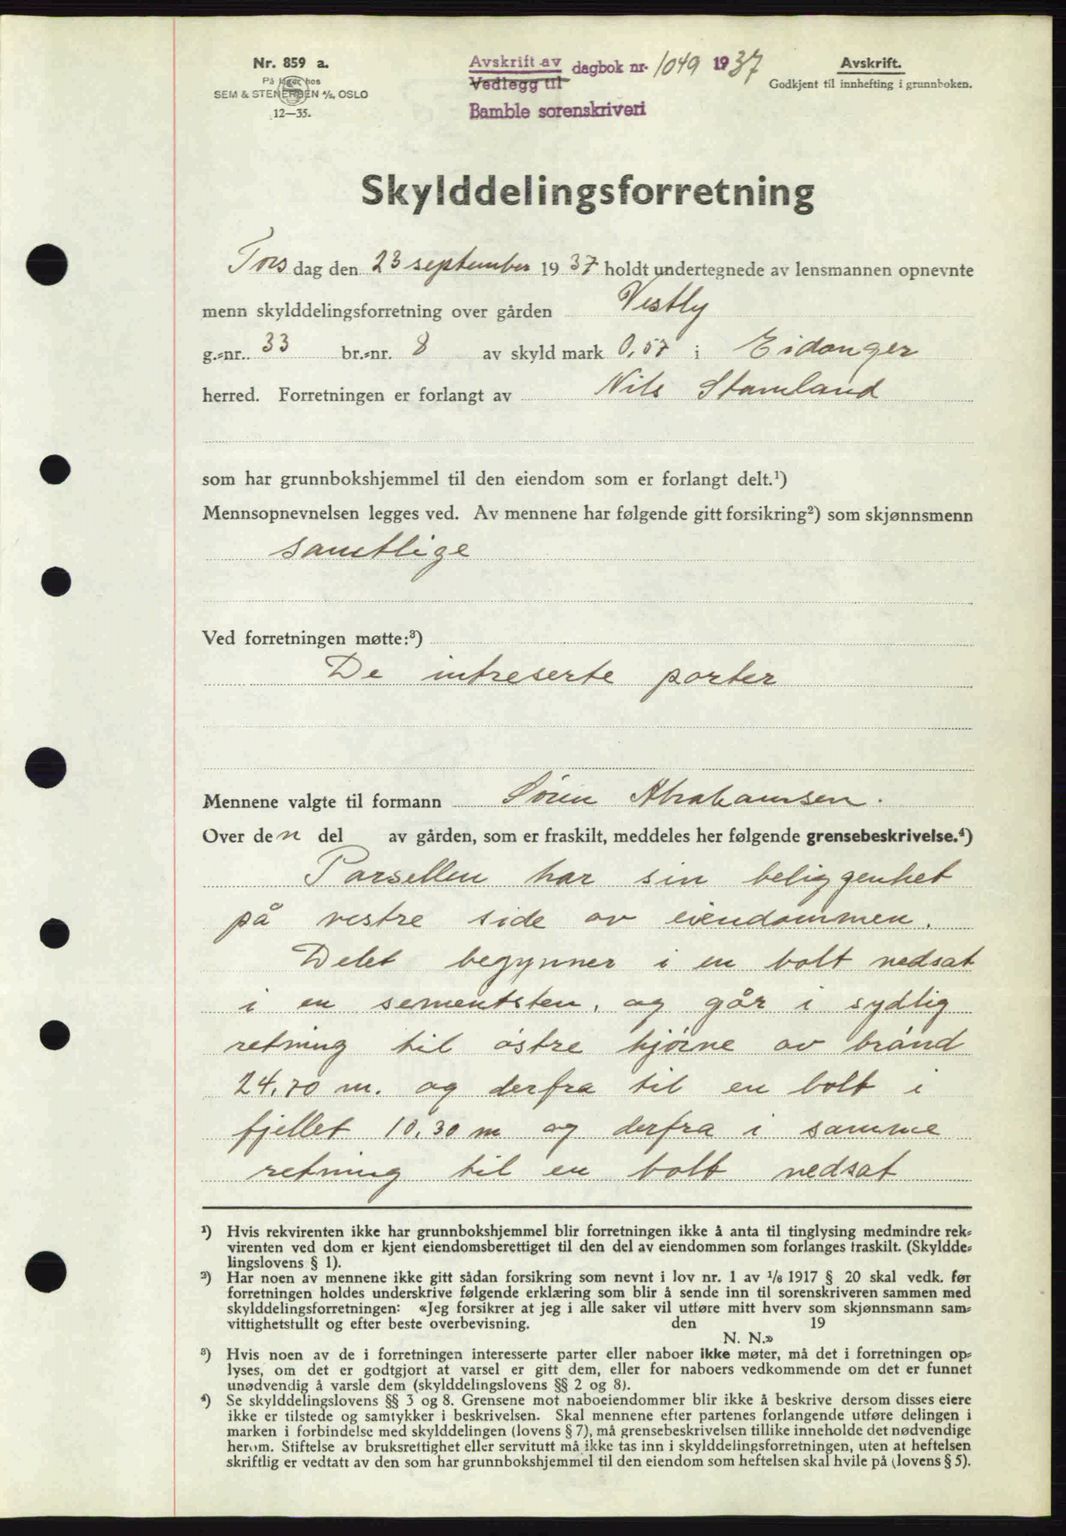 Nr. 859 a.
På lager hos
SEM & STENERSEN A/S, OSLO
12—35.
Avskrift av
Vedlegg til
dagbok nr. 1049 1937
Bamble sorenskriveri
Avskrift.
Godkjent til innhefting i grunnboken.
Skylddelingsforretning
Torsdag den 23 september 1937 holdt undertegnede av lensmannen opnevnte
menn skylddelingsforretning over gården Vestly
g.=nr. 33 br.=nr. 8 av skyld mark 0,57 i Eidanger
herred. Forretningen er forlangt av Nils Stamland
som har grunnbokshjemmel til den eiendom som er forlangt delt.¹)
Mennsopnevnelsen legges ved. Av mennene har følgende gitt forsikring²) som skjønnsmenn
samtlige
Ved forretningen møtte:³)
De intreserte parter
Mennene valgte til formann Søren Abrahamsen.
Over den del av gården, som er fraskilt, meddeles her følgende grensebeskrivelse.⁴)
Parsellen har sin beliggenhet
på vestre side av eiendommen.
Delet begynner i en bolt nedsat
i en sementsten, og går i sydlig
retning til østre hjørne av brånd
24,70 m. og derfra til en bolt i
fjellet 10,30 m og derfra i samme
retning til en bolt nedsat
¹) Hvis rekvirenten ikke har grunnbokshjemmel blir forretningen ikke å anta til tinglysing medmindre rek=
virenten ved dom er kjent eiendomsberettiget til den del av eiendommen som forlanges fraskilt. (Skyldde=
lingslovens § 1).
²) Har noen av mennene ikke gitt sådan forsikring som nevnt i lov nr. 1 av 1/6 1917 § 20 skal vedk. før
forretningen holdes underskrive følgende erklæring som blir å sende inn til sorenskriveren sammen med
skylddelingsforretningen: «Jeg forsikrer at jeg i alle saker vil utføre mitt hverv som skjønnsmann sam=
vittighetsfullt og efter beste overbevisning. den 19
N. N.»
³) Hvis noen av de i forretningen interesserte parter eller naboer ikke møter, må det i forretningen op=
lyses, om det er godtgjort at varsel er gitt dem, eller for naboers vedkommende om det er funnet
unødvendig å varsle dem (skylddelingslovens §§ 2 og 8).
⁴) Se skylddelingslovens §§ 3 og 8. Grensene mot naboeiendommer blir ikke å beskrive dersom disses eiere
ikke er tilstede og samtykker i beskrivelsen. Skal mennene efter partenes forlangende utføre delingen i
marken i forbindelse med skylddelingen (lovens § 7), må grensebeskrivelsen tillike inneholde det nødvendige
herom. Stiftelse av bruksrettighet eller servitutt må ikke tas inn i skylddelingsforretningen, uten at heftelsen
skriftlig er vedtatt av den som har grunnbokshjemmel til den eiendom som heftelsen skal hvile på (lovens § 5).